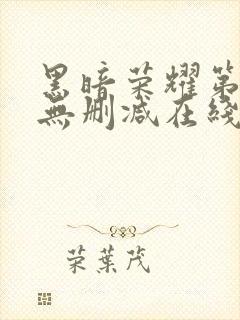 黑暗荣耀第
無刪减在綫
荣葉茂